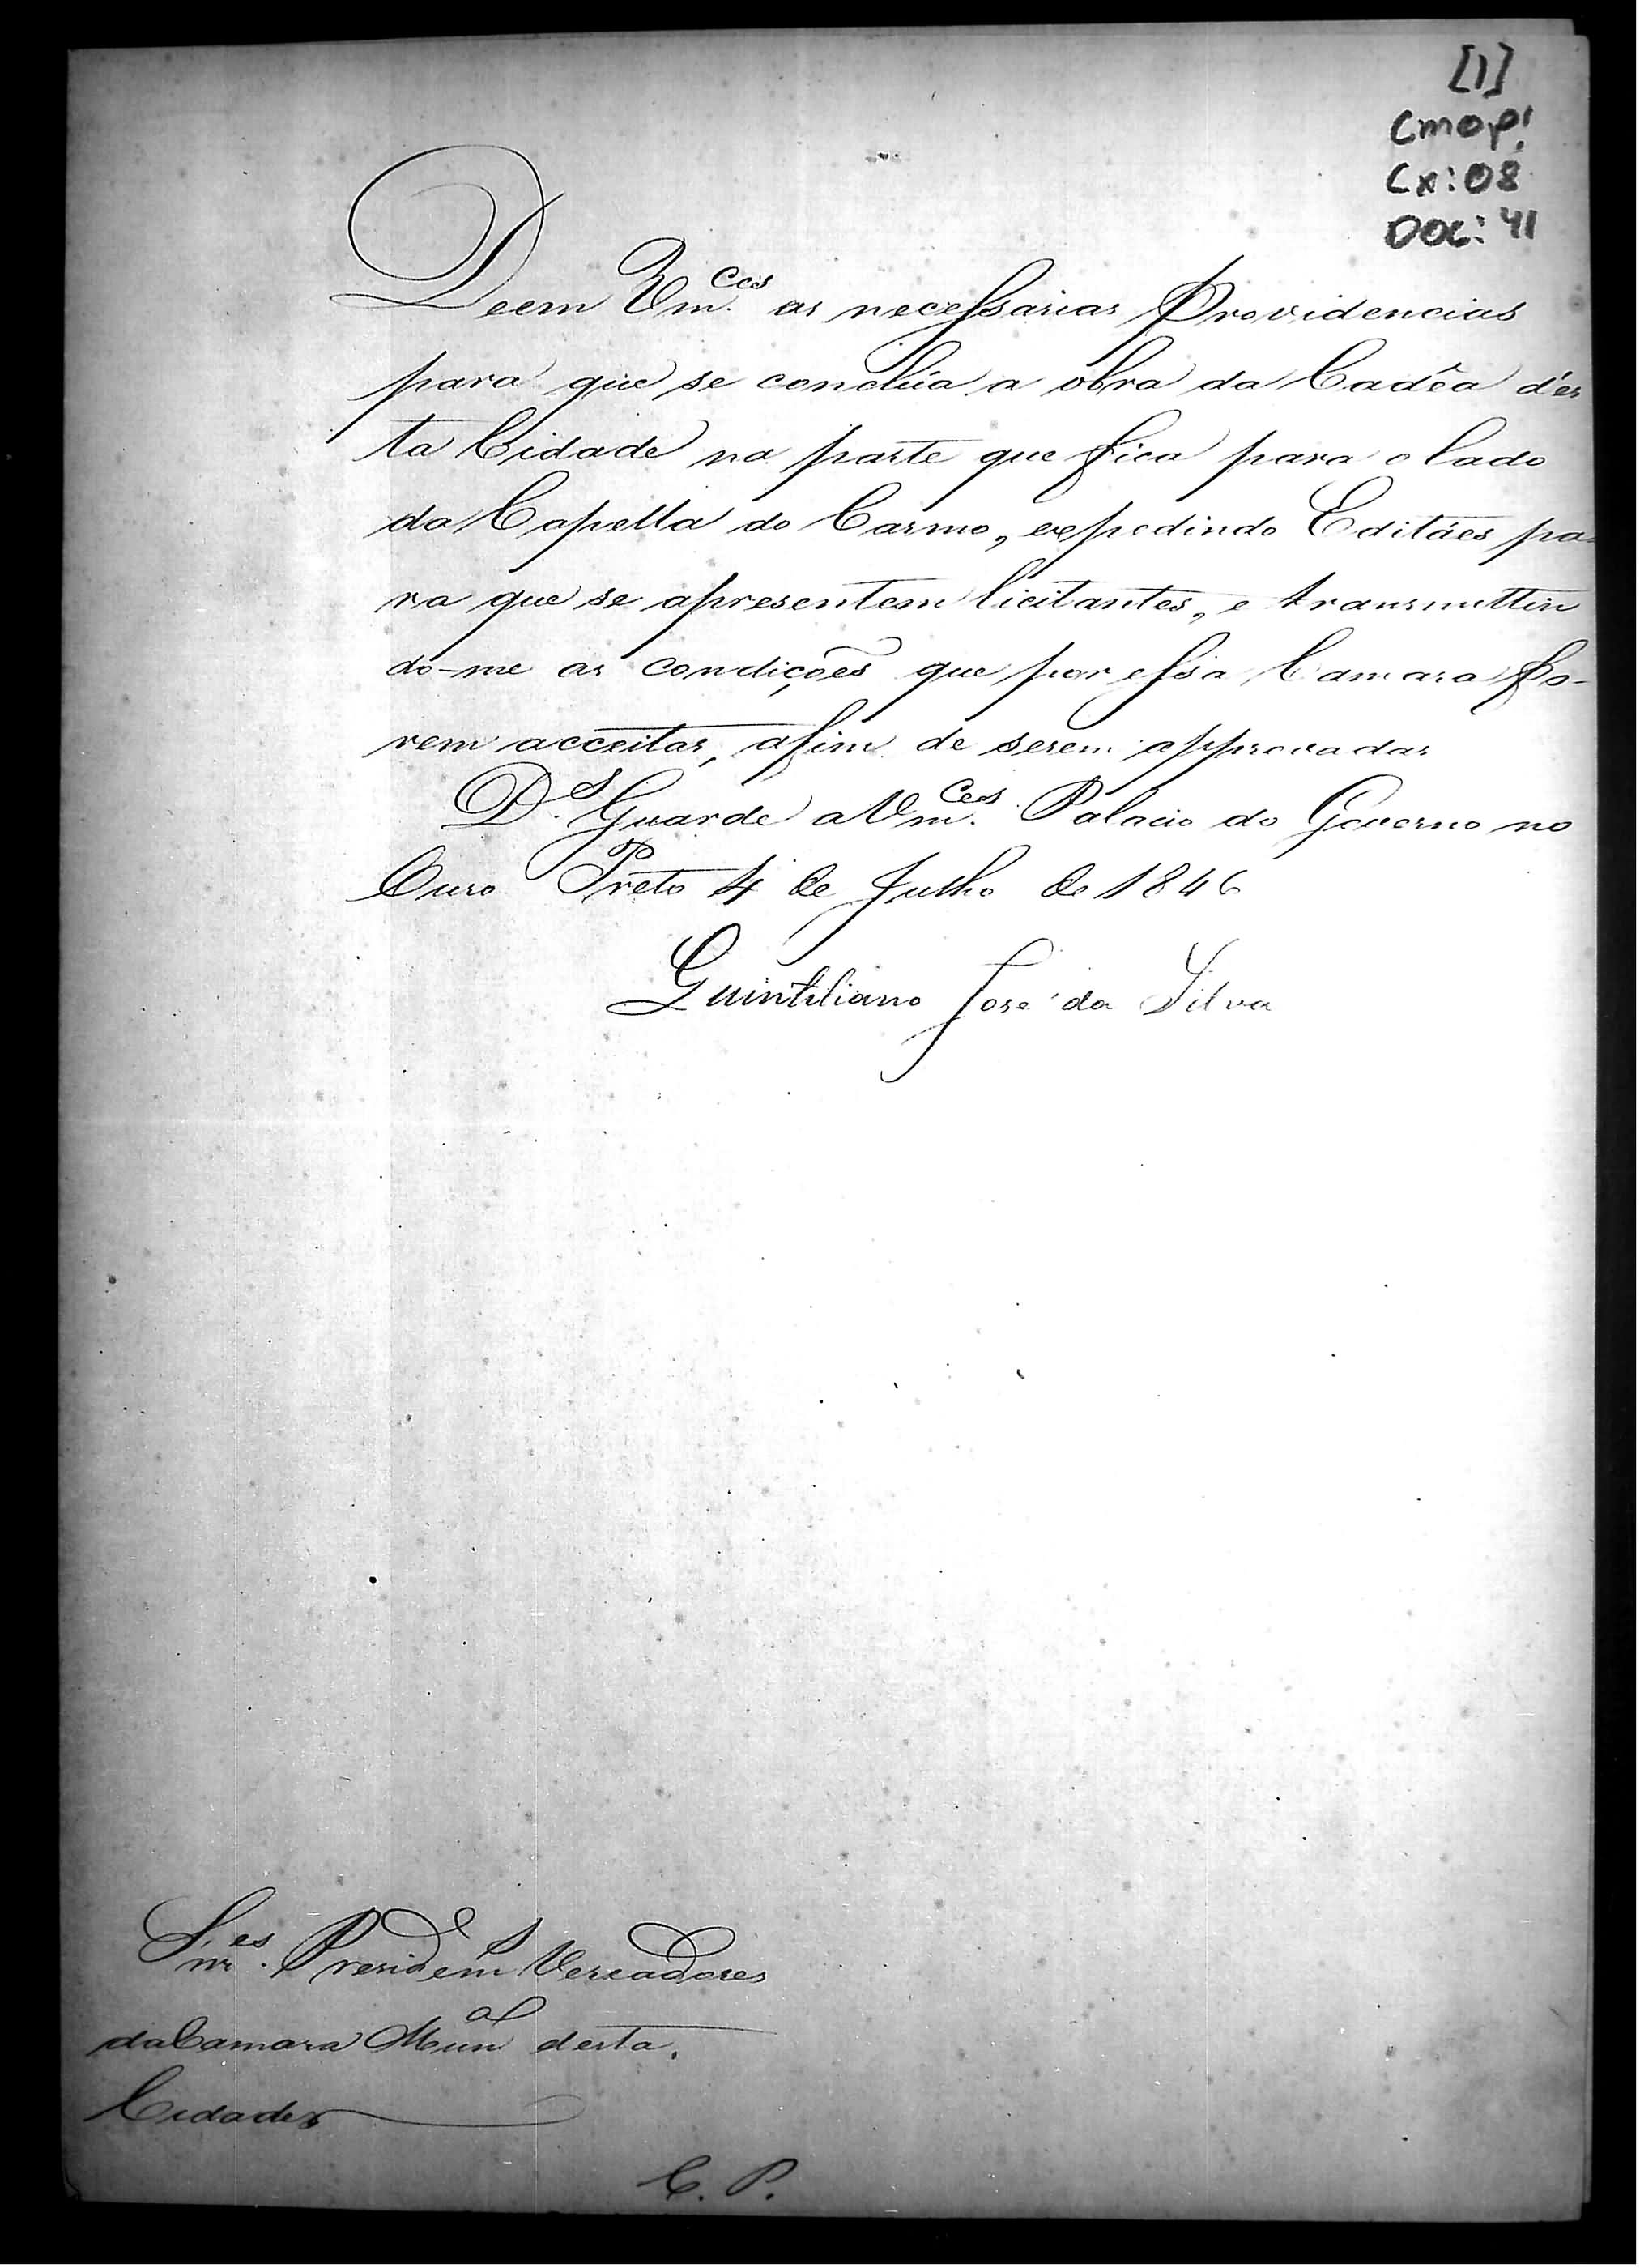 [1]
CMOP!
Cx: 08
DOC: 41
Deem Vm.ces as necessarias Providencias
para que se conclúa a obra da Cadêa d'es
ta Cidade na parte que fica para o lado
da Capella do Carmo, expedindo Editáes pa-
ra que se apresentem licitantes, e transmittin
do-me as condições que por essa Camara fo-
rem acceitas, afim de serem approvadas
D.s Guarde a Vm.ces Palacio do Governo no
Ouro Preto 4 de Julho de 1846
Quintiliano José da Silva
Snr.es Presid.e em Vereadores
da Camara Mun.al desta
Cidade
C. P.